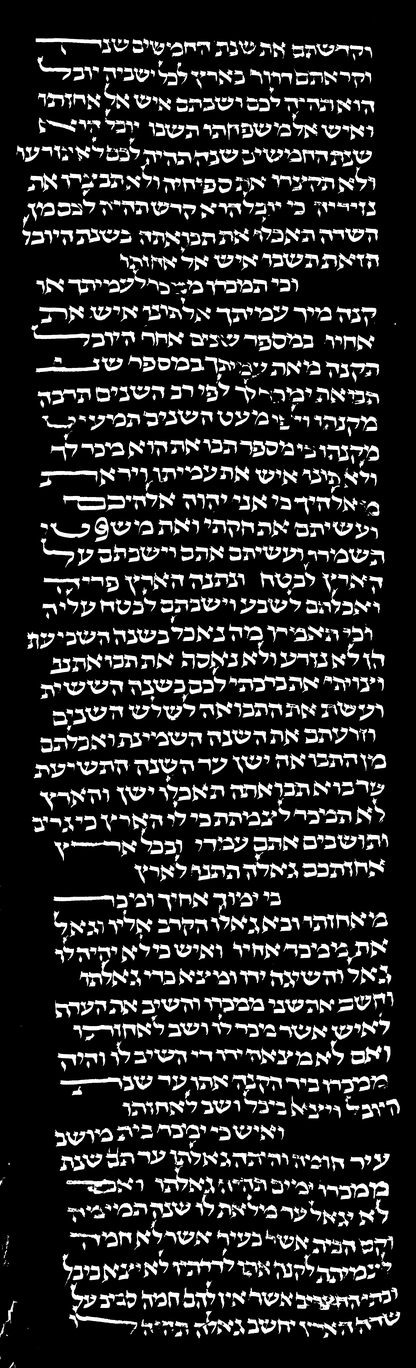 וקדשתם את שנת החמשים שנה
וקראתם דרור בארץ לכל ישביה יובל
הוא תהיה לכם ושבתם איש אל אחזתו
ואיש אל משפחתו תשבו יובל הוא
שנת החמשים שנה תהיה לכם לא תזרעו
ולא תקצרו את ספיחיה ולא תבצרו את
נזריה כי יובל הוא קדש תהיה לכם מן
השדה תאכלו את תבואתה בשנת היובל
הזאת תשבו איש אל אחזתו
וכי תמכרו ממכר לעמיתך או
קנה מיד עמיתך אל תונו איש את
אחיו במספר שנים אחר היובל
תקנה מאת עמיתך במספר שני
תבואת ימכר לך לפי רב השנים תרבה
מקנתו ולפי מעט השנים תמעיט
מקנתו כי מספר תבואת הוא מכר לך
ולא תונו איש את עמיתו ויראת
מאלהיך כי אני יהוה אלהיכם
ועשיתם את חקתי ואת משפטי
תשמרו ועשיתם אתם וישבתם על
הארץ לבטח ונתנה הארץ פריה
ואכלתם לשבע וישבתם לבטח עליה
וכי תאמרו מה נאכל בשנה השביעת
הן לא נזרע ולא נאסף את תבואתנו
וצויתי את ברכתי לכם בשנה הששית
ועשת את התבואה לשלש השנים
וזרעתם את השנה השמינת ואכלתם
מן התבואה ישן עד השנה התשיעת
עד בוא תבואתה תאכלו ישן והארץ
לא תמכר לצמתת כי לי הארץ כי גרים
ותושבים אתם עמדי ובכל ארץ
אחזתכם גאלה תתנו לארץ
כי ימוך אחיך ומכר
מאחזתו ובא גאלו הקרב אליו וגאל
את ממכר אחיו ואיש כי לא יהיה לו
גאל והשיגה ידו ומצא כדי גאלתו
וחשב את שני ממכרו והשיב את העדף
לאיש אשר מכר לו ושב לאחזתו
ואם לא מצאה ידו די השיב לו והיה
ממכרו ביד הקנה אתו עד שנת
היובל ויצא ביבל ושב לאחזתו
ואיש כי ימכר בית מושב
עיר חומה והיתה גאלתו עד תם שנת
ממכרו ימים תהיה גאלתו ואם
לא יגאל עד מלאת לו שנה תמימה
וקם הבית אשר בעיר אשר לא חמה
לצמיתת לקנה אתו לדרתיו לא יצא ביבל
ובתי החצרים אשר אין להם חמה סביב על
שדה הארץ יחשב גאלה תהיה